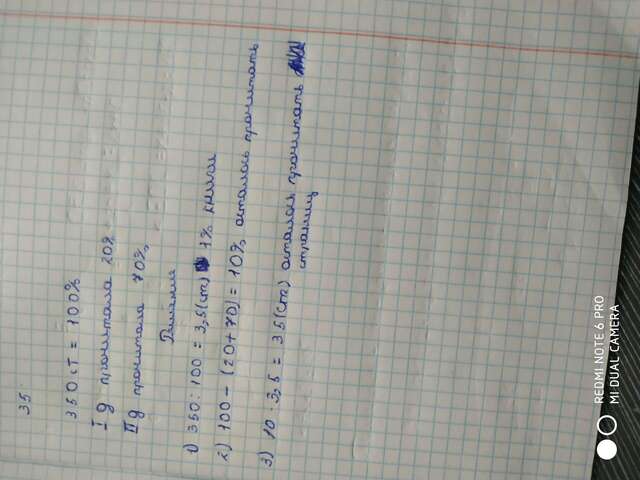 35
350 ст = 100%
I д прочитала 20%
II д прочитала 70%
Решение
1) 350 : 100 = 3,5 (ст) 1% книги
2) 100 - (20+70) = 10% осталось прочитать
3) 10 · 3,5 = 35 (ст) осталось прочитать
страниц
REDMI NOTE 6 PRO
MI DUAL CAMERA